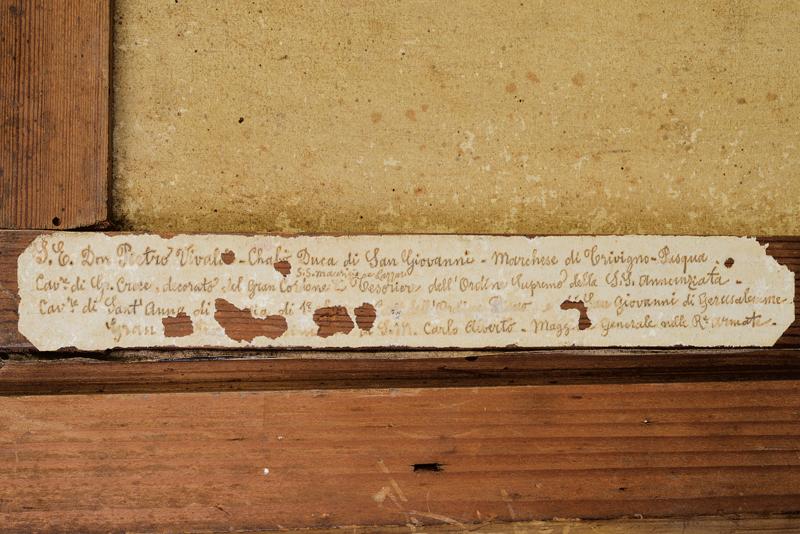 S. E. Don Pietro Vival - Chal Duca di San Giovanni - Marchese di Trivigno-Pasqua
S.S. Maurizio e Lazzaro
Cav.re di Gr. Croce, decorato del Gran Cordone e Tesoriere dell'Ordine Supremo della S.S. Annunziata -
Cav.re di Sant'Anna di di 1ª dell'Ordine San Giovanni di Gerusalemme -
Gran S. M. Carlo Alberto - Magg Generale nella R.e Armata -